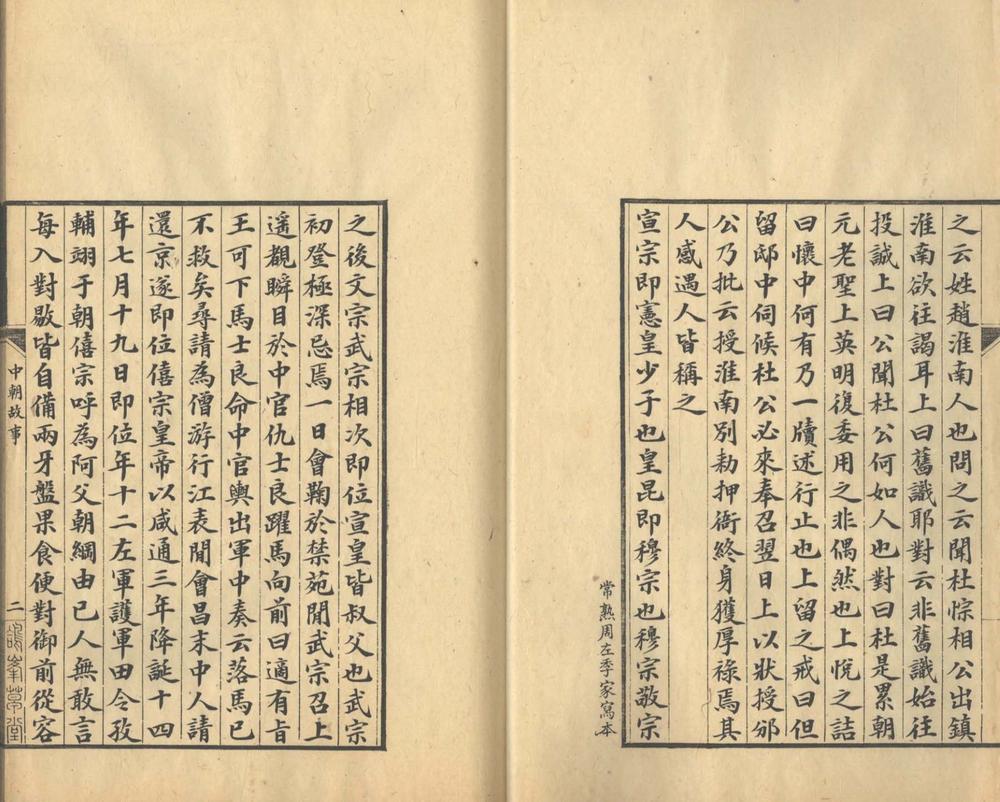 之云姓趙淮南人也問之云聞杜悰相公出鎮
淮南欲往謁耳上曰舊識耶對云非舊識始往
投誠上曰公聞杜公何如人也對曰杜是累朝
元老聖上英明復委用之非偶然也上悅之詰
曰懷中何有乃一牘述行止也上留之戒曰但
留邸中伺候杜公必來奉召翌日上以狀授邠
公乃批云授淮南別勑押衙終身獲厚祿焉其
人感遇人皆稱之
宣宗即憲皇少子也皇昆即穆宗也穆宗敬宗
常熟周左季家寫本
之後文宗武宗相次即位宣皇皆叔父也武宗
初登極深忌焉一日會鞠於禁苑間武宗召上
遥觀瞬目於中官仇士良躍馬向前曰適有旨
王可下馬士良命中官輿出軍中奏云落馬已
不救矣尋請為僧游行江表間會昌末中人請
還京遂即位僖宗皇帝以咸通三年降誕十四
年七月十九日即位年十二左軍護軍田令孜
輔翊于朝僖宗呼為阿父朝綱由已人無敢言
每入對敭皆自備兩牙盤果食便對御前從容
中朝故事
二
鴿峯草堂